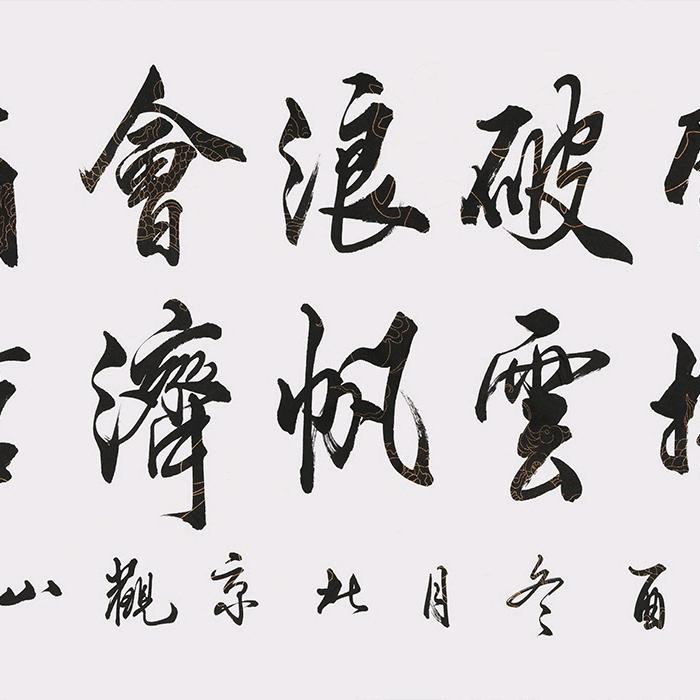 破浪會
雲帆濟
酉冬月北京觀山